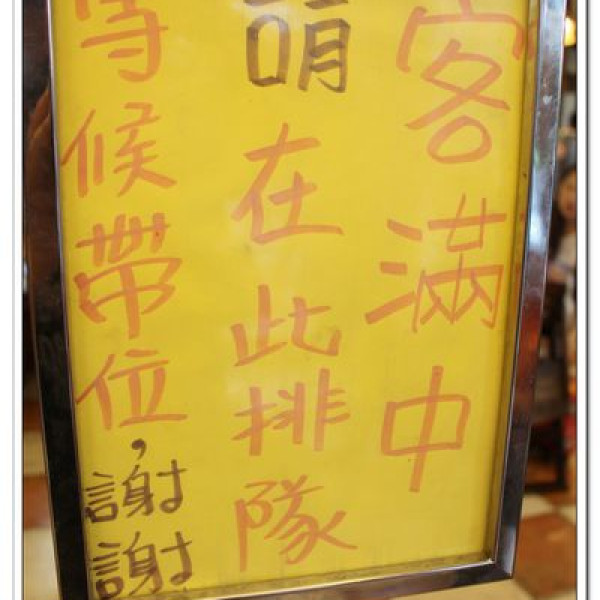 客滿中
請在此排隊
等候帶位，謝謝